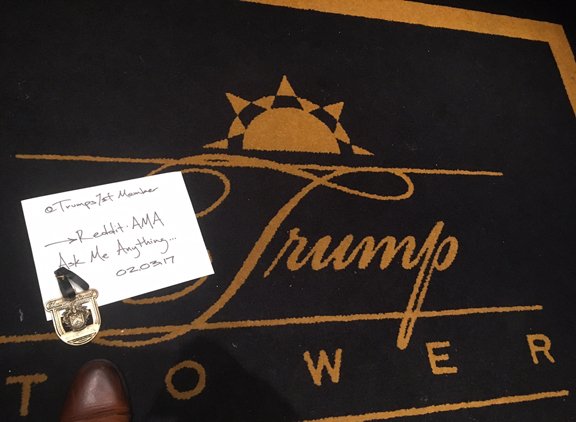 @Trumps1st Member
→ Reddit AMA
Ask Me Anything...
02.03.17
Trump
TOWER